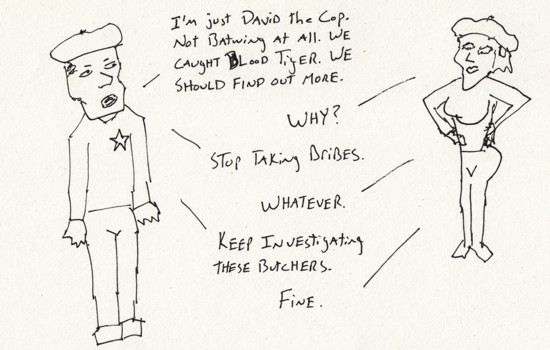 I'm just David the Cop.
Not Batwing at all. We
caught Blood Tiger. We
should find out more.
Why?
Stop taking bribes.
Whatever.
Keep investigating
these butchers.
Fine.